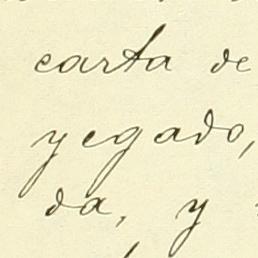 carta de
yegado,
da, y